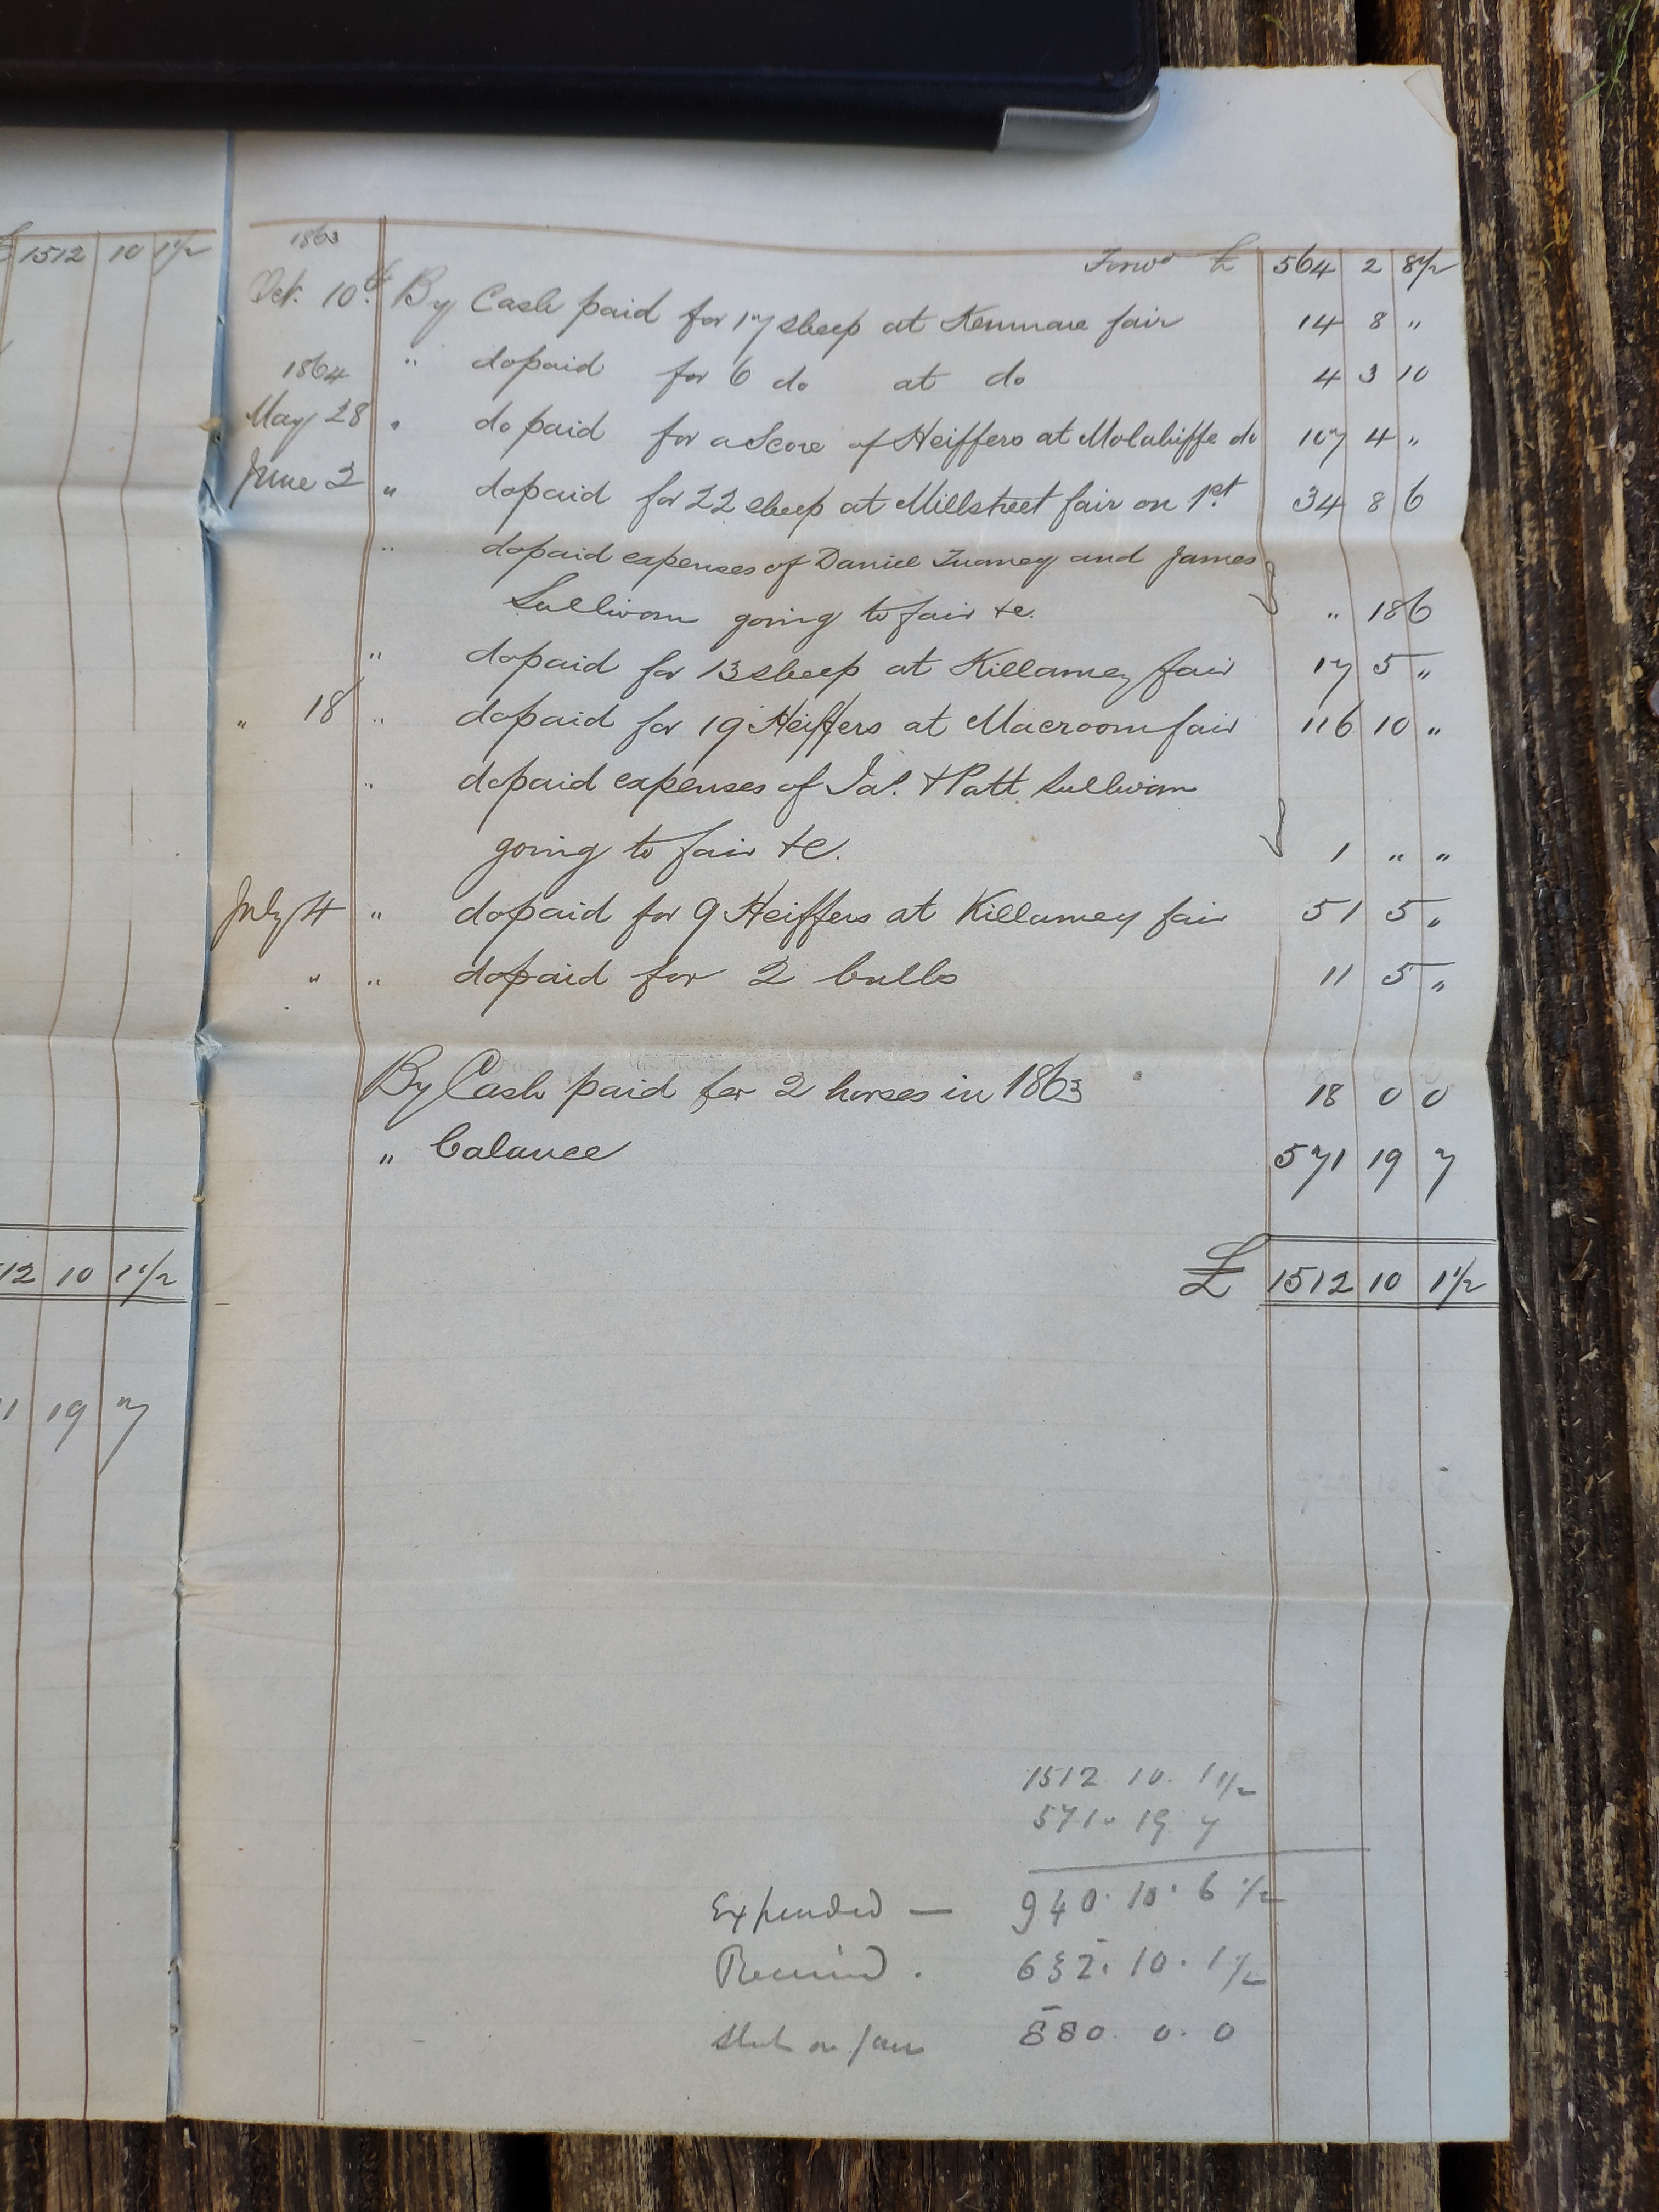 £ 1512 10 1 1/2
12 10 1 1/2
1 19 7
1863
Forwd £ 564 2 8 1/2
Oct. 10th By Cash paid for 17 sheep at Kenmare fair 14 8 "
" do paid for 6 do at do 4 3 10
1864
May 28 " do paid for a Score of Heiffers at Molahiffe do 107 4 "
June 2 " do paid for 22 sheep at Millstreet fair on 1st 34 8 6
" do paid expenses of Daniel Tuomey and James
Sullivan going to fair &c. " 18 6
" do paid for 13 sheep at Killarney fair 17 5 "
" 18 " do paid for 19 Heiffers at Macroom fair 116 10 "
" do paid expenses of Jas. & Patt Sullivan
going to fair &c. 1 " "
July 4 " do paid for 9 Heiffers at Killarney fair 51 5 "
" " do paid for 2 bulls 11 5 "
By Cash paid for 2 horses in 1863 18 0 0
" balance 571 19 7
£ 1512 10 1 1/2
1512. 10. 1 1/2
571. 19 7
Expended — 940. 10. 6 1/2
Received . 632. 10. 1 1/2
on 880. 0. 0